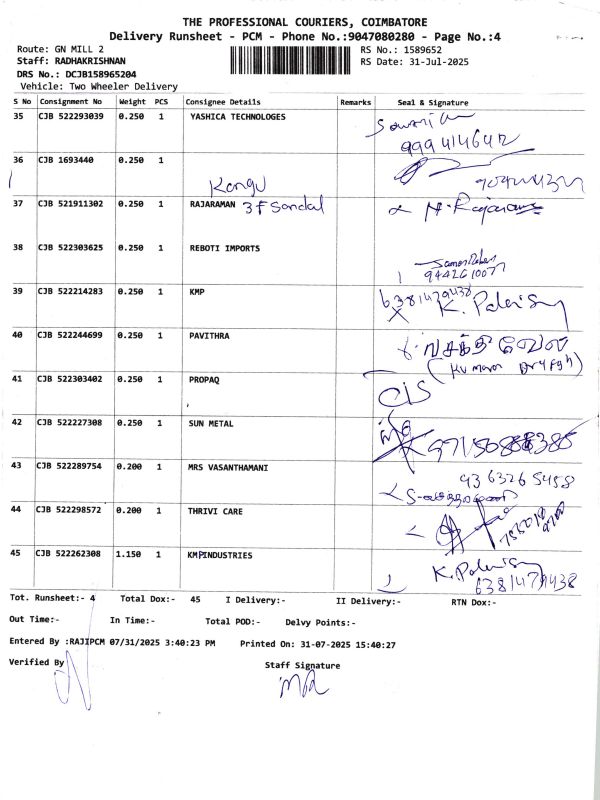 THE PROFESSIONAL COURIERS, COIMBATORE
Delivery Runsheet - PCM - Phone No.:9047080280 - Page No.:4
Route: GN MILL 2
RS No.: 1589652
Staff: RADHAKRISHNAN
RS Date: 31-Jul-2025
DRS No.: DCJB158965204
Vehicle: Two Wheeler Delivery
S No Consignment No Weight PCS Consignee Details Remarks Seal & Signature
35 CJB 522293039 0.250 1 YASHICA TECHNOLOGES
36 CJB 1693440 0.250 1
Kongu
37 CJB 521911302 0.250 1 RAJARAMAN 3F Sandal
38 CJB 522303625 0.250 1 REBOTI IMPORTS
39 CJB 522214283 0.250 1 KMP
6381479438
40 CJB 522244699 0.250 1 PAVITHRA
41 CJB 522303402 0.250 1 PROPAQ
42 CJB 522227308 0.250 1 SUN METAL
43 CJB 522289754 0.200 1 MRS VASANTHAMANI
936326 5458
44 CJB 522298572 0.200 1 THRIVI CARE
45 CJB 522262308 1.150 1 KMPINDUSTRIES
6381479438
Tot. Runsheet:- 4 Total Dox:- 45 I Delivery:- II Delivery:- RTN Dox:-
Out Time:- In Time:- Total POD:- Delvy Points:-
Entered By :RAJIPCM 07/31/2025 3:40:23 PM Printed On: 31-07-2025 15:40:27
Verified By Staff Signature